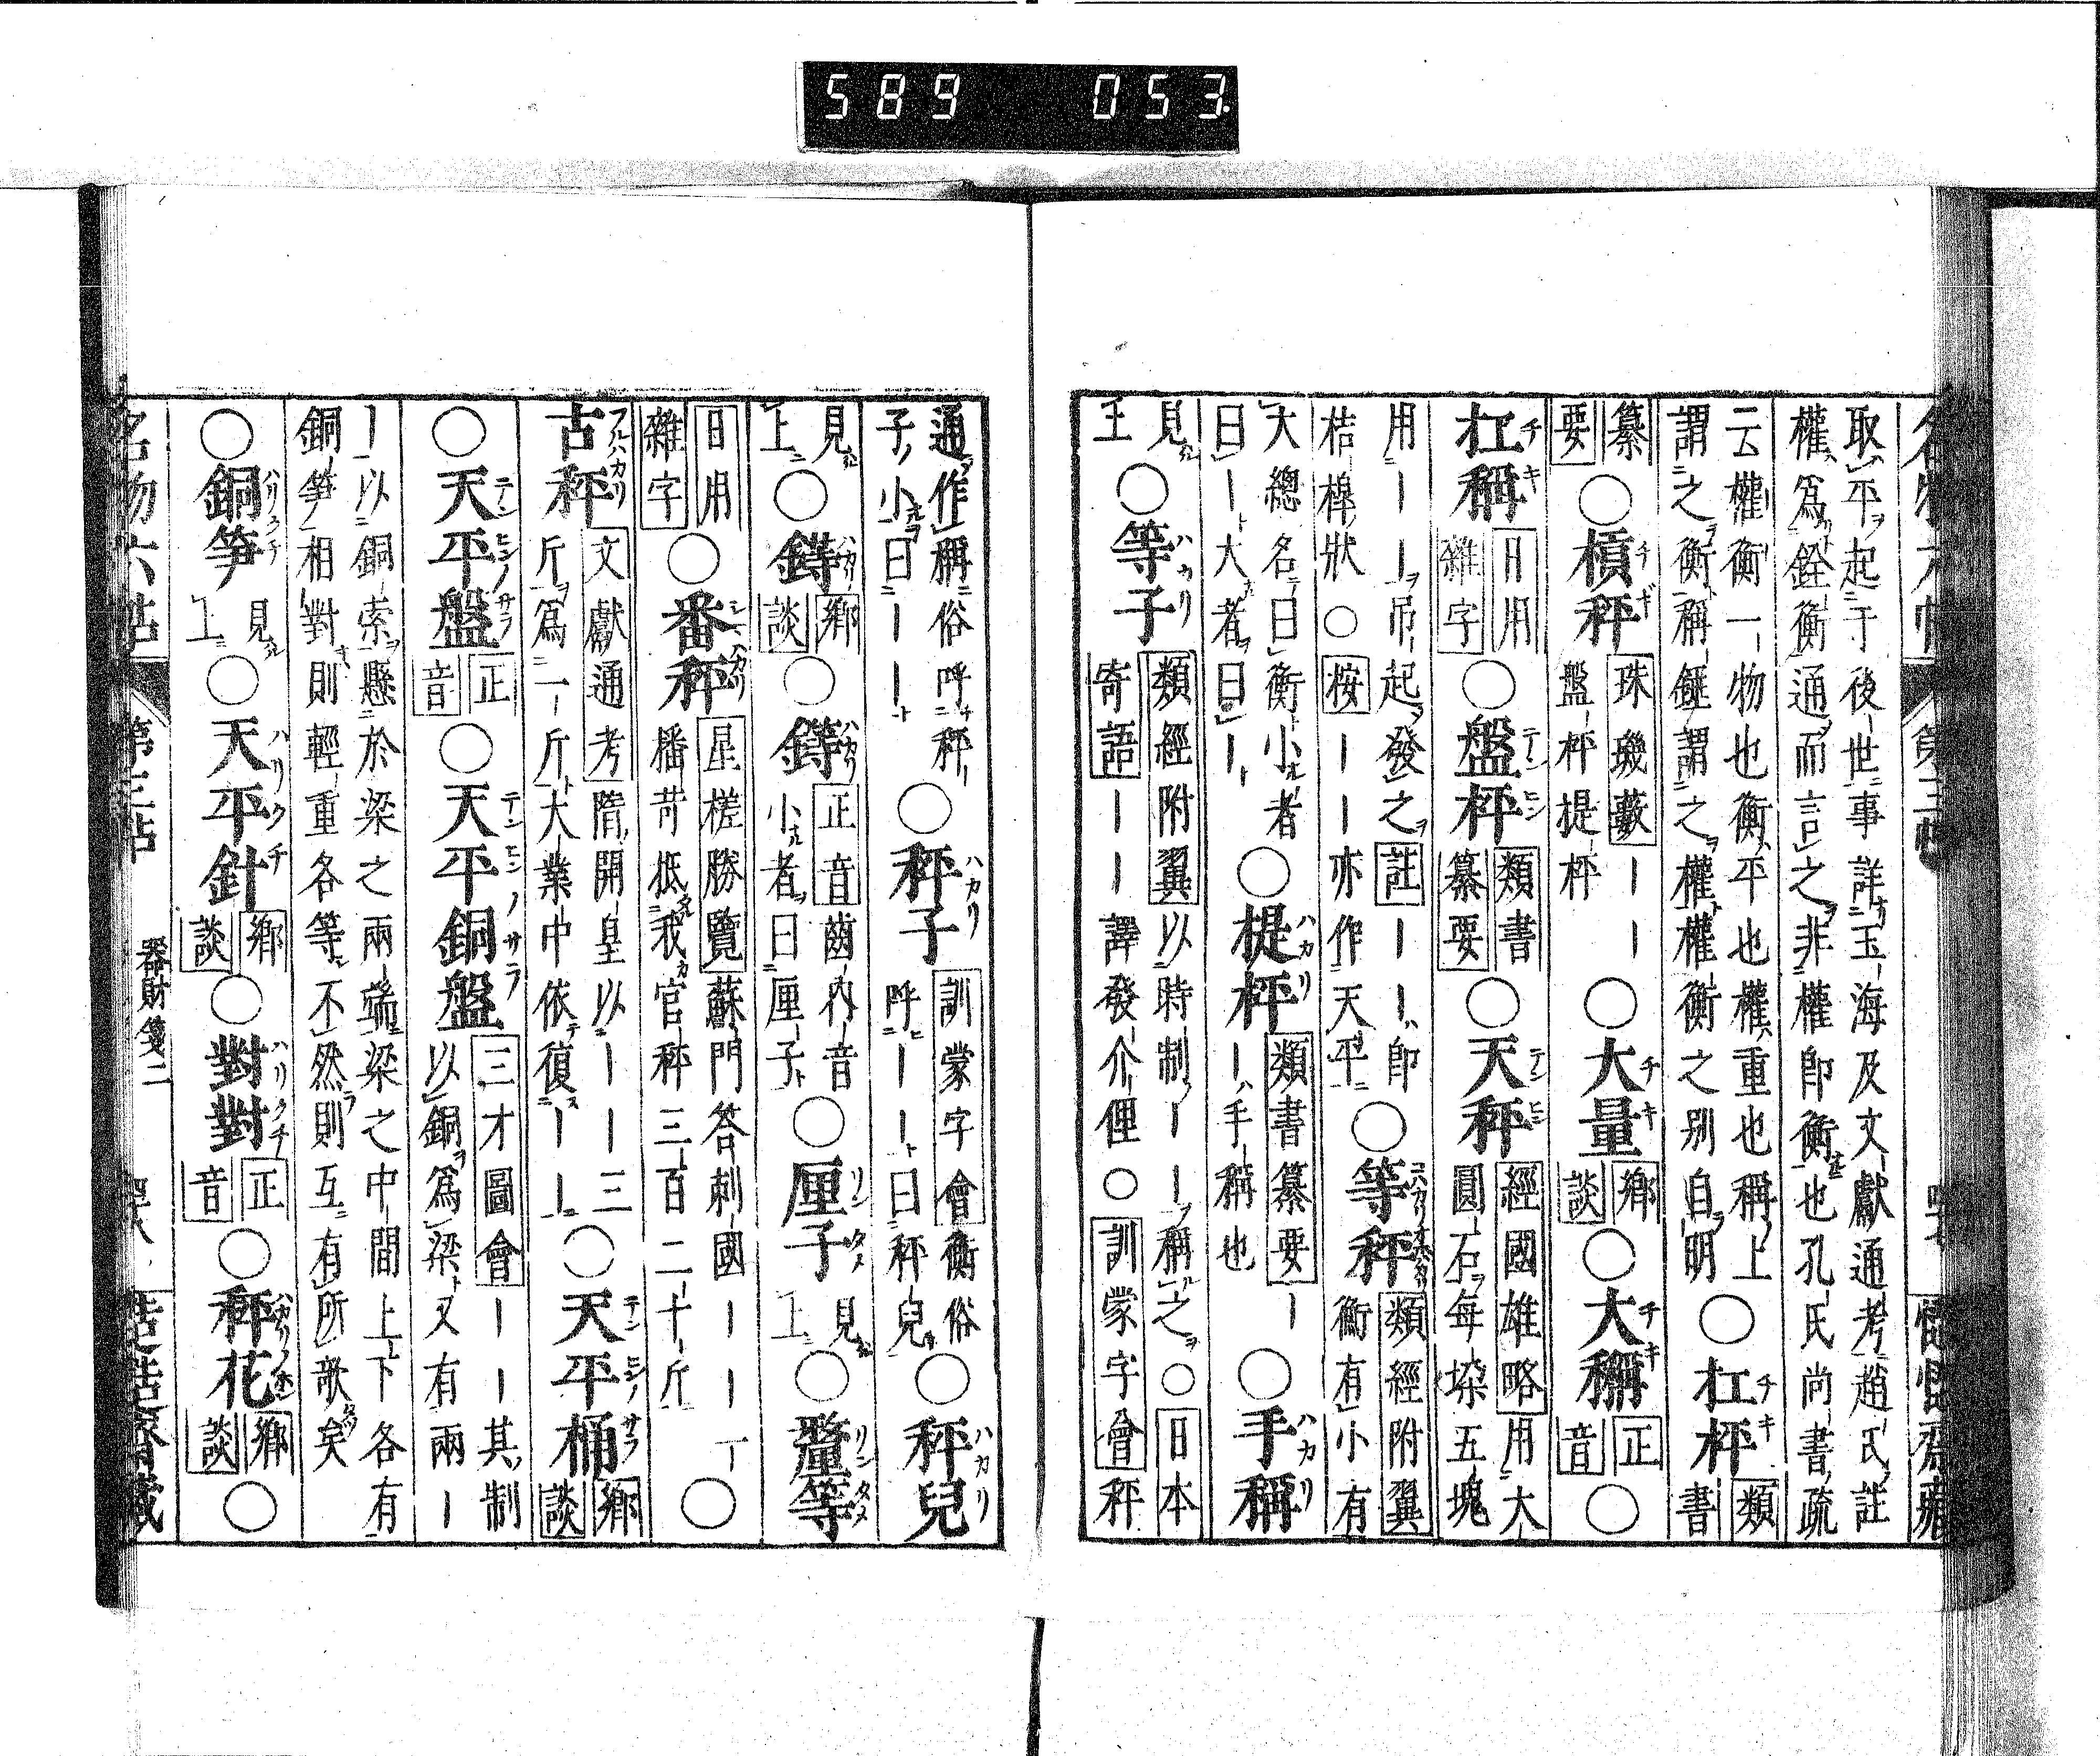 589 053
取平起于後世事詳玉海及文獻通考趙氏註
權爲銓衡通而言之非權即衡也孔氏尚書疏
云權衡一物也衡平也權重也稱上
謂之衡稱鎚謂之權權衡之別自明
○杠枰 類書
纂要
○槓秤 珠璣藪｜｜
盤枰提枰
○大量 鄉談
○大稱 正音
○
杠稱 日用雜字
○盤枰 類書纂要
○天秤 經國雄略 用大
圓石每垜五塊
用｜｜吊起發之 註｜｜即
桔槹狀○按｜｜亦作天平
○等秤 類經附翼
衡有小有
大總名曰衡小者
曰｜大者曰｜
○提枰 類書纂要｜
｜手稱也
○手稱
見上
○等子 類經附翼 以時制｜｜稱之○日本
寄語｜｜譯發介俚○訓蒙字會秤
通作稱俗呼秤
子小曰｜｜
○秤子 訓蒙字會 衡俗
呼｜｜曰秤兒
○秤兒
見上
○䥯 鄉談
○䥯 正音 齒內音
小者曰厘子
○厘子 見上
○釐等
日用雜字
○番秤 星槎勝覽 蘇門答刺國｜｜一
播荷抵我官秤三百二十斤
○
古秤 文獻通考 隋開皇以｜｜三
斤爲一斤大業中依復｜｜
○天平桶 鄉談
○天平盤 正音
○天平銅盤 三才圖會｜｜其制
以銅爲梁又有兩｜
｜以銅索懸於梁之兩端梁之中間上下各有
銅笋相對則輕重各等不然則互有所欹矣
○銅笋 見上
○天平針 鄉談
○對對 正音
○秤花 鄉談
○
名物六帖 第三帖 器財箋二